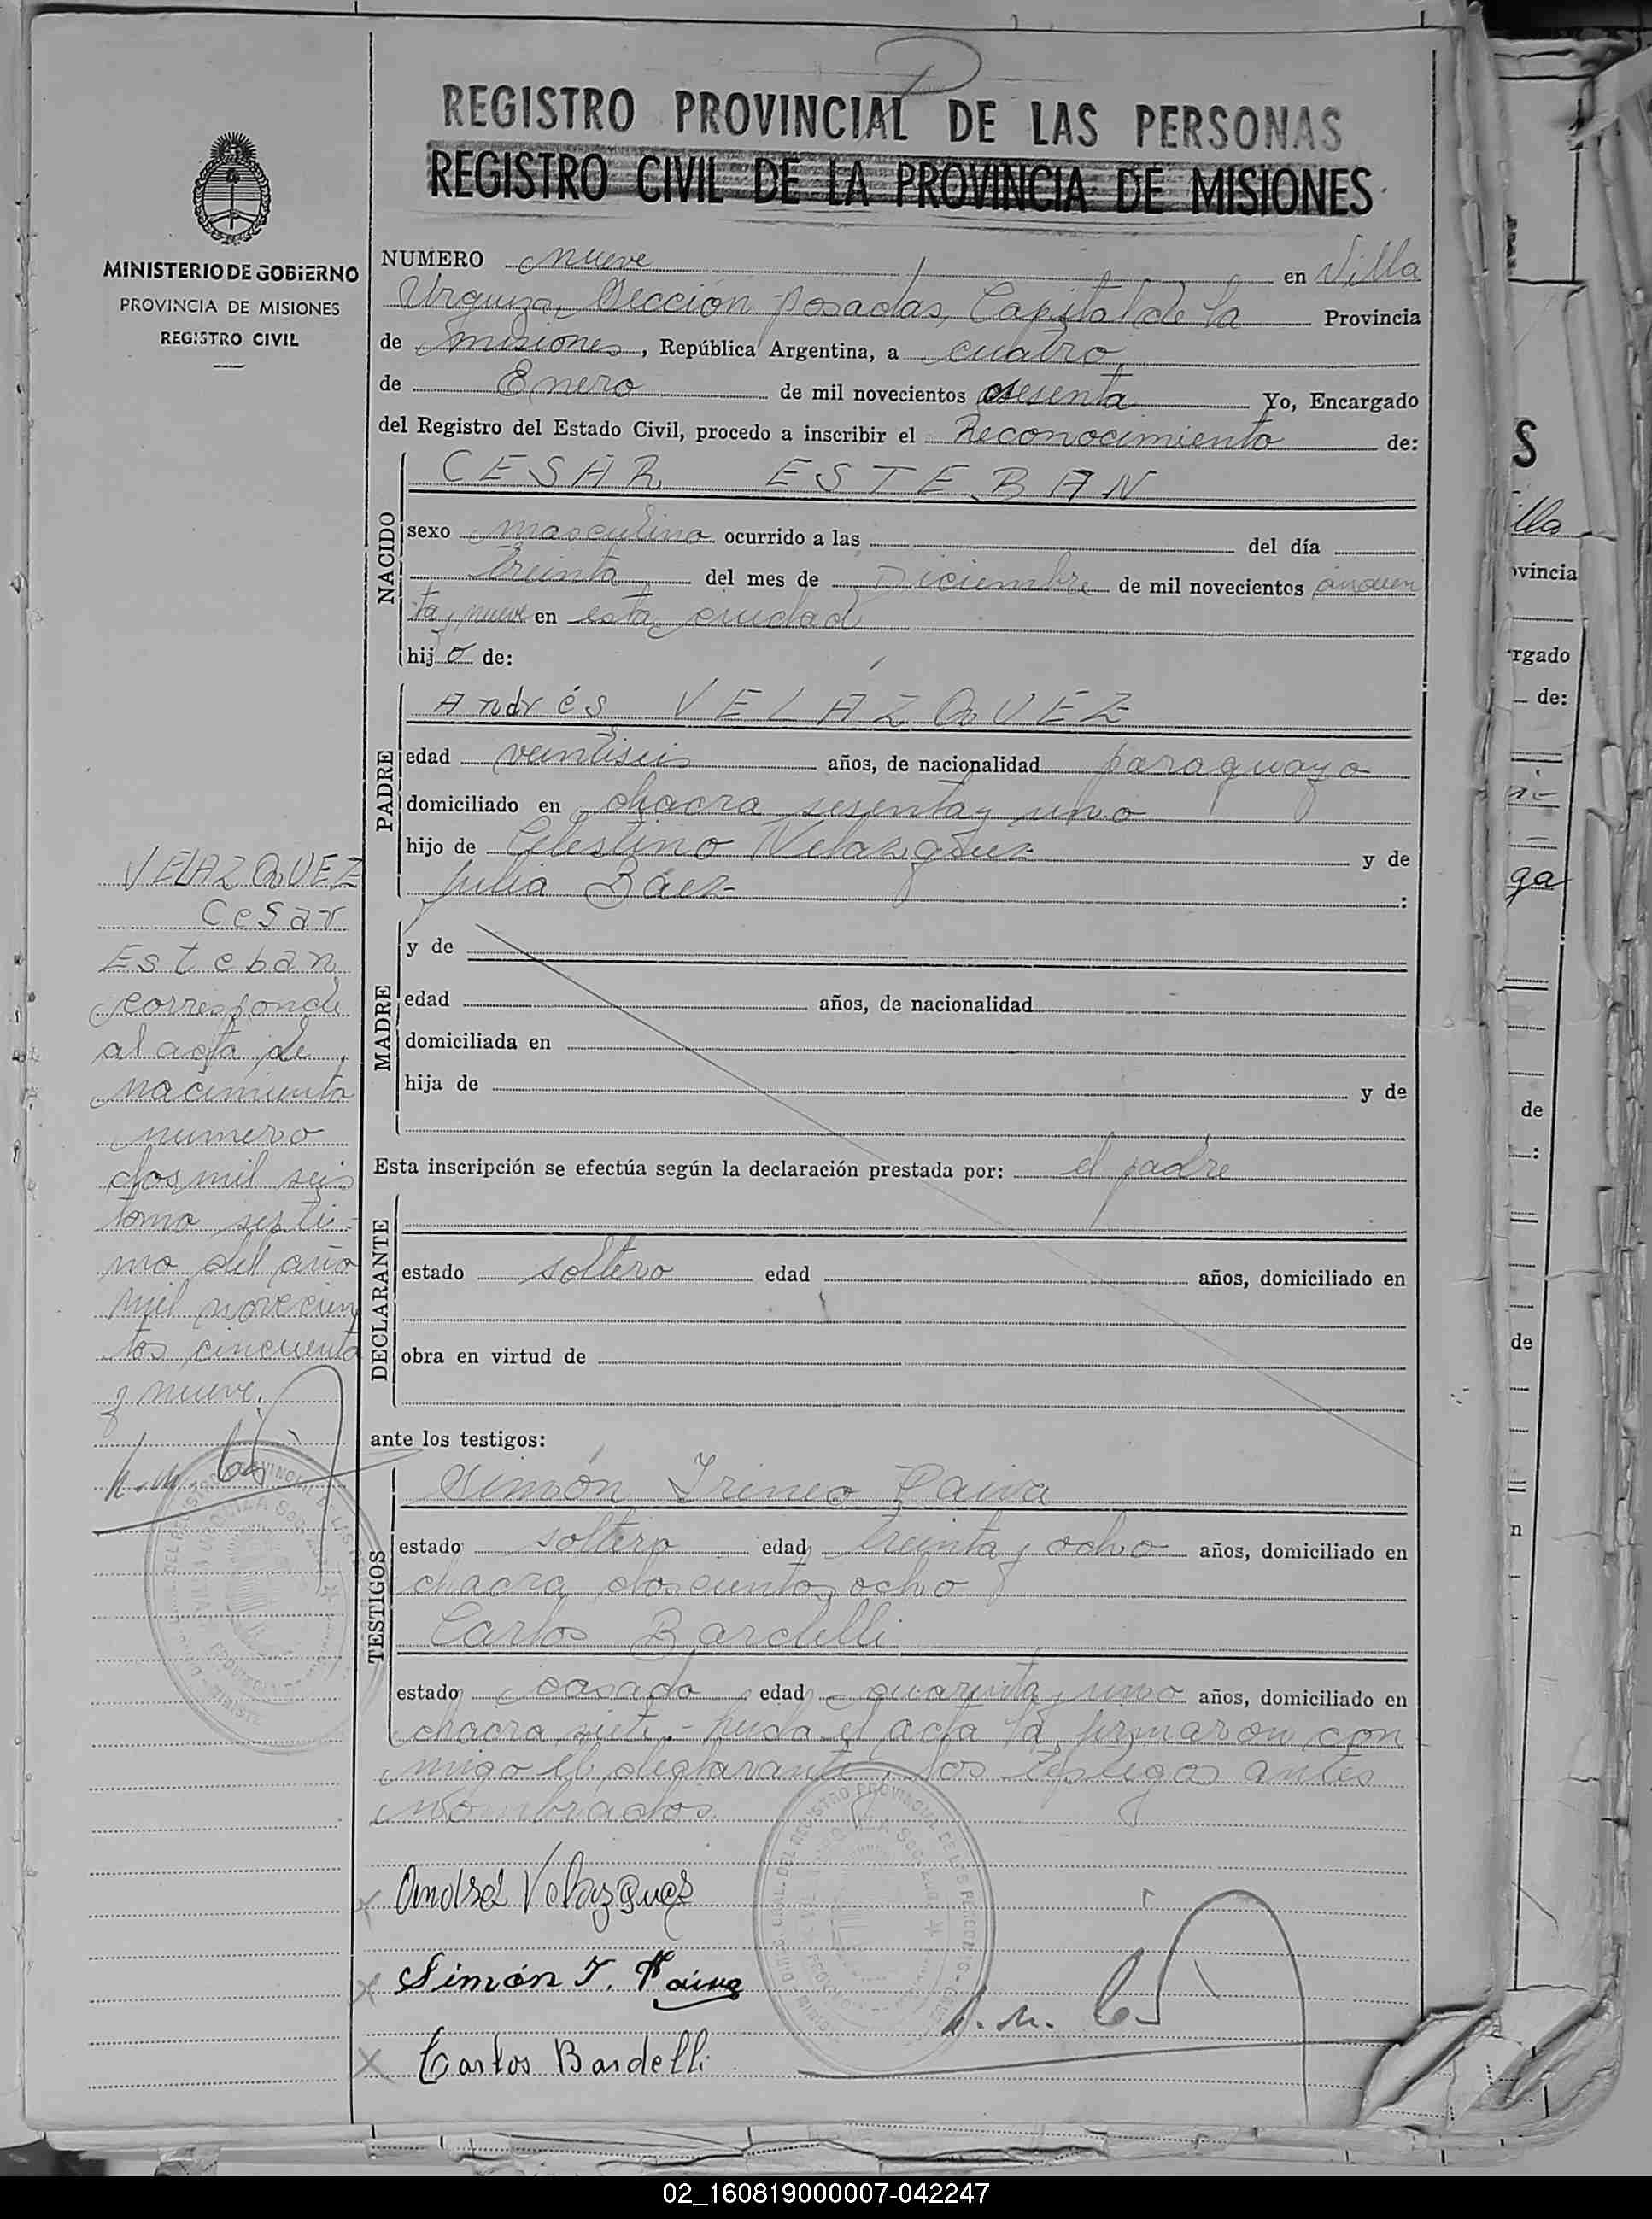 REGISTRO PROVINCIAL DE LAS PERSONAS
REGISTRO CIVIL DE LA PROVINCIA DE MISIONES
MINISTERIO DE GOBIERNO
PROVINCIA DE MISIONES
REGISTRO CIVIL
NUMERO nueve en Villa
Urquiza, Sección Posadas, Capital de la Provincia
de Misiones, República Argentina, a cuatro
de Enero de mil novecientos sesenta Yo, Encargado
del Registro del Estado Civil, procedo a inscribir el Reconocimiento de:
NACIDO
CESAR ESTEBAN
sexo masculino ocurrido a las del día
treinta del mes de Diciembre de mil novecientos cincuen
ta y nueve en esta ciudad
hijo de:
PADRE
Andrés VELÁZQUEZ
edad veintiseis años, de nacionalidad paraguayo
domiciliado en chacra sesenta y uno
hijo de Celestino Velazquez y de
Julia Báez :
MADRE
y de
edad años, de nacionalidad
domiciliada en
hija de y de
Esta inscripción se efectúa según la declaración prestada por: el padre
DECLARANTE
estado soltero edad años, domiciliado en
obra en virtud de
ante los testigos:
TESTIGOS
Simón Irineo Paiva
estado soltero edad treinta y ocho años, domiciliado en
chacra doscientos ocho
Carlos Bardelli
estado casado edad cuarenta y uno años, domiciliado en
chacra siete.- leida el acta la firmaron con
migo el declarante y los testigos antes
nombrados.
Andres Velazquez
Simón I. Paiva
Carlos Bardelli
VELAZQUEZ
Cesar
Esteban
corresponde
al acta de
nacimiento
numero
dos mil seis
tomo septi-
mo del año
mil novecien
tos cincuenta
y nueve.
S
illa
ovincia
rgado
de:
ga
de
:
de
n
02_160819000007-042247